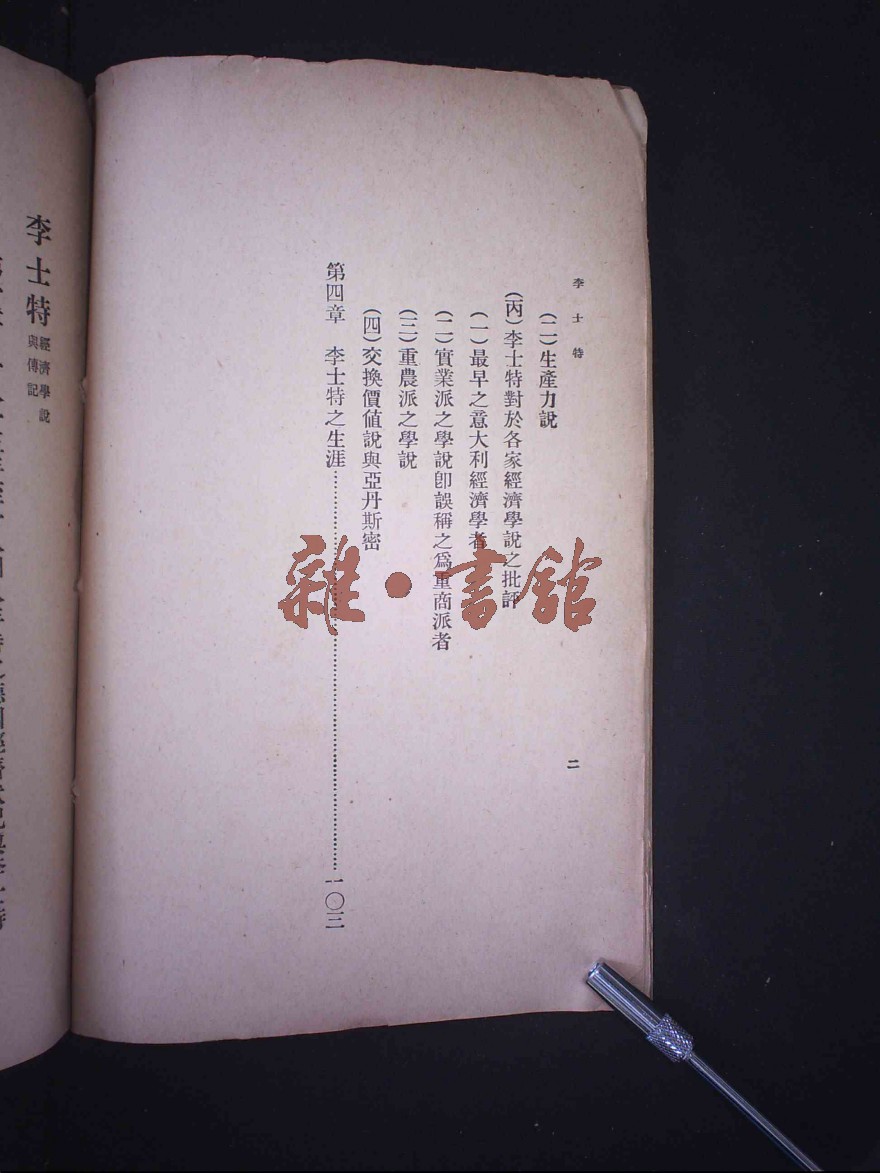 李士特
二
（二）生產力說
（丙）李士特對於各家經濟學說之批評
（一）最早之意大利經濟學者
（二）實業派之學說卽誤稱之爲重商派者
（三）重農派之學說
（四）交換價値說與亞丹斯密
第四章　李士特之生涯……一〇三
雜·書館
李士特經濟學說與傳記